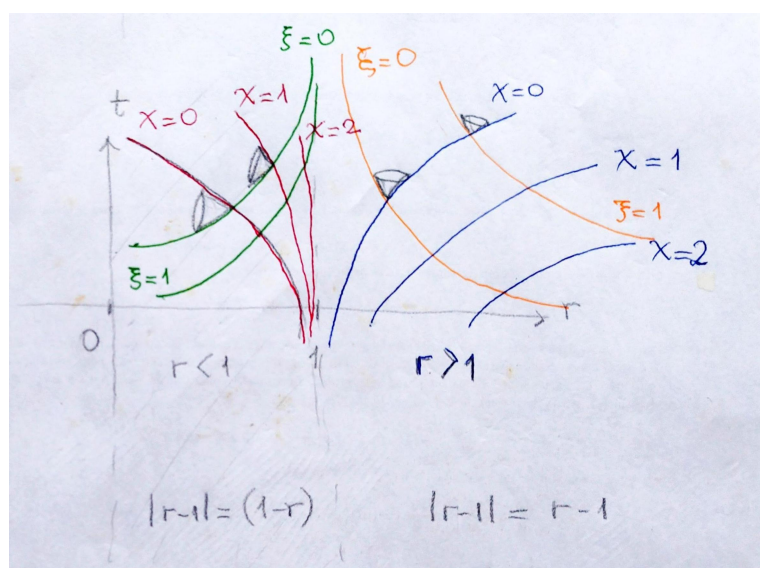 ξ=0
ξ=0
t
χ=0
χ=1
χ=2
χ=0
χ=1
ξ=1
χ=2
ξ=1
r
0
1
r<1
r>1
|r-1|=(1-r)
|r-1|= r-1